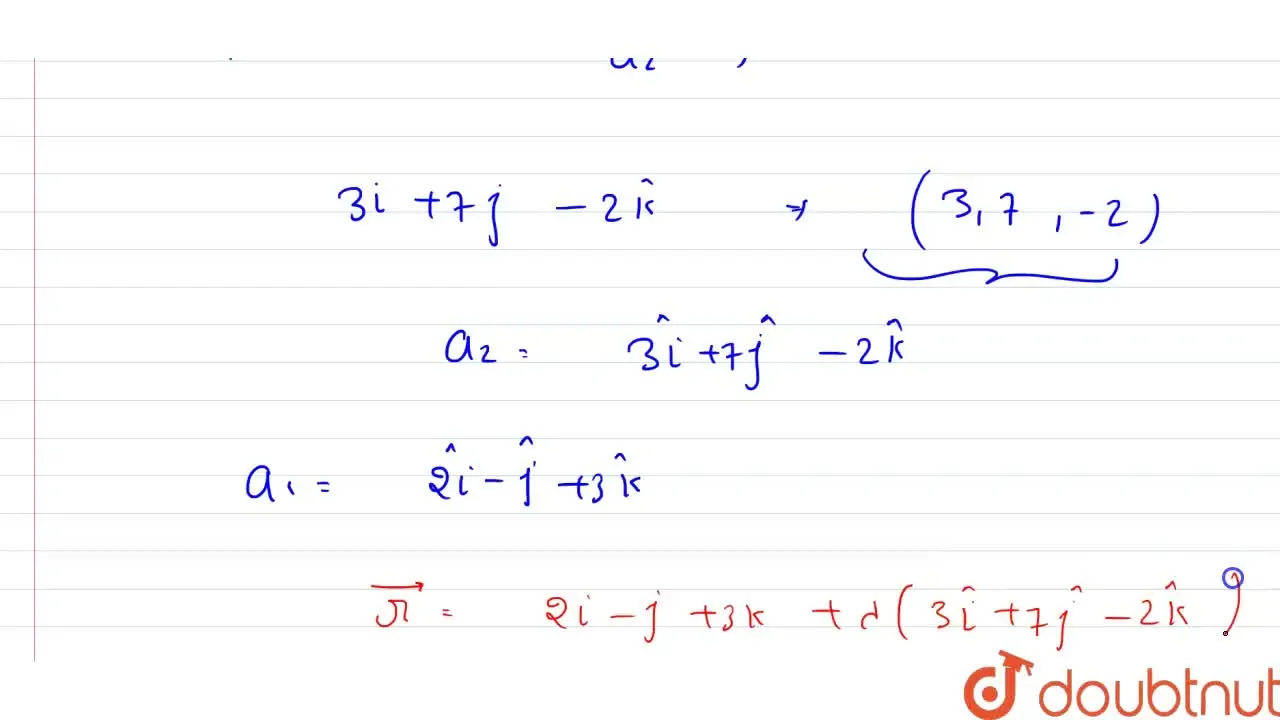 3i + 7j - 2k̂ → (3, 7, -2)
a₂ = 3î + 7ĵ - 2k̂
a₁ = 2î - ĵ + 3k̂
r⃗ = 2i - j + 3k + λ(3î + 7ĵ - 2k̂)
doubtnut